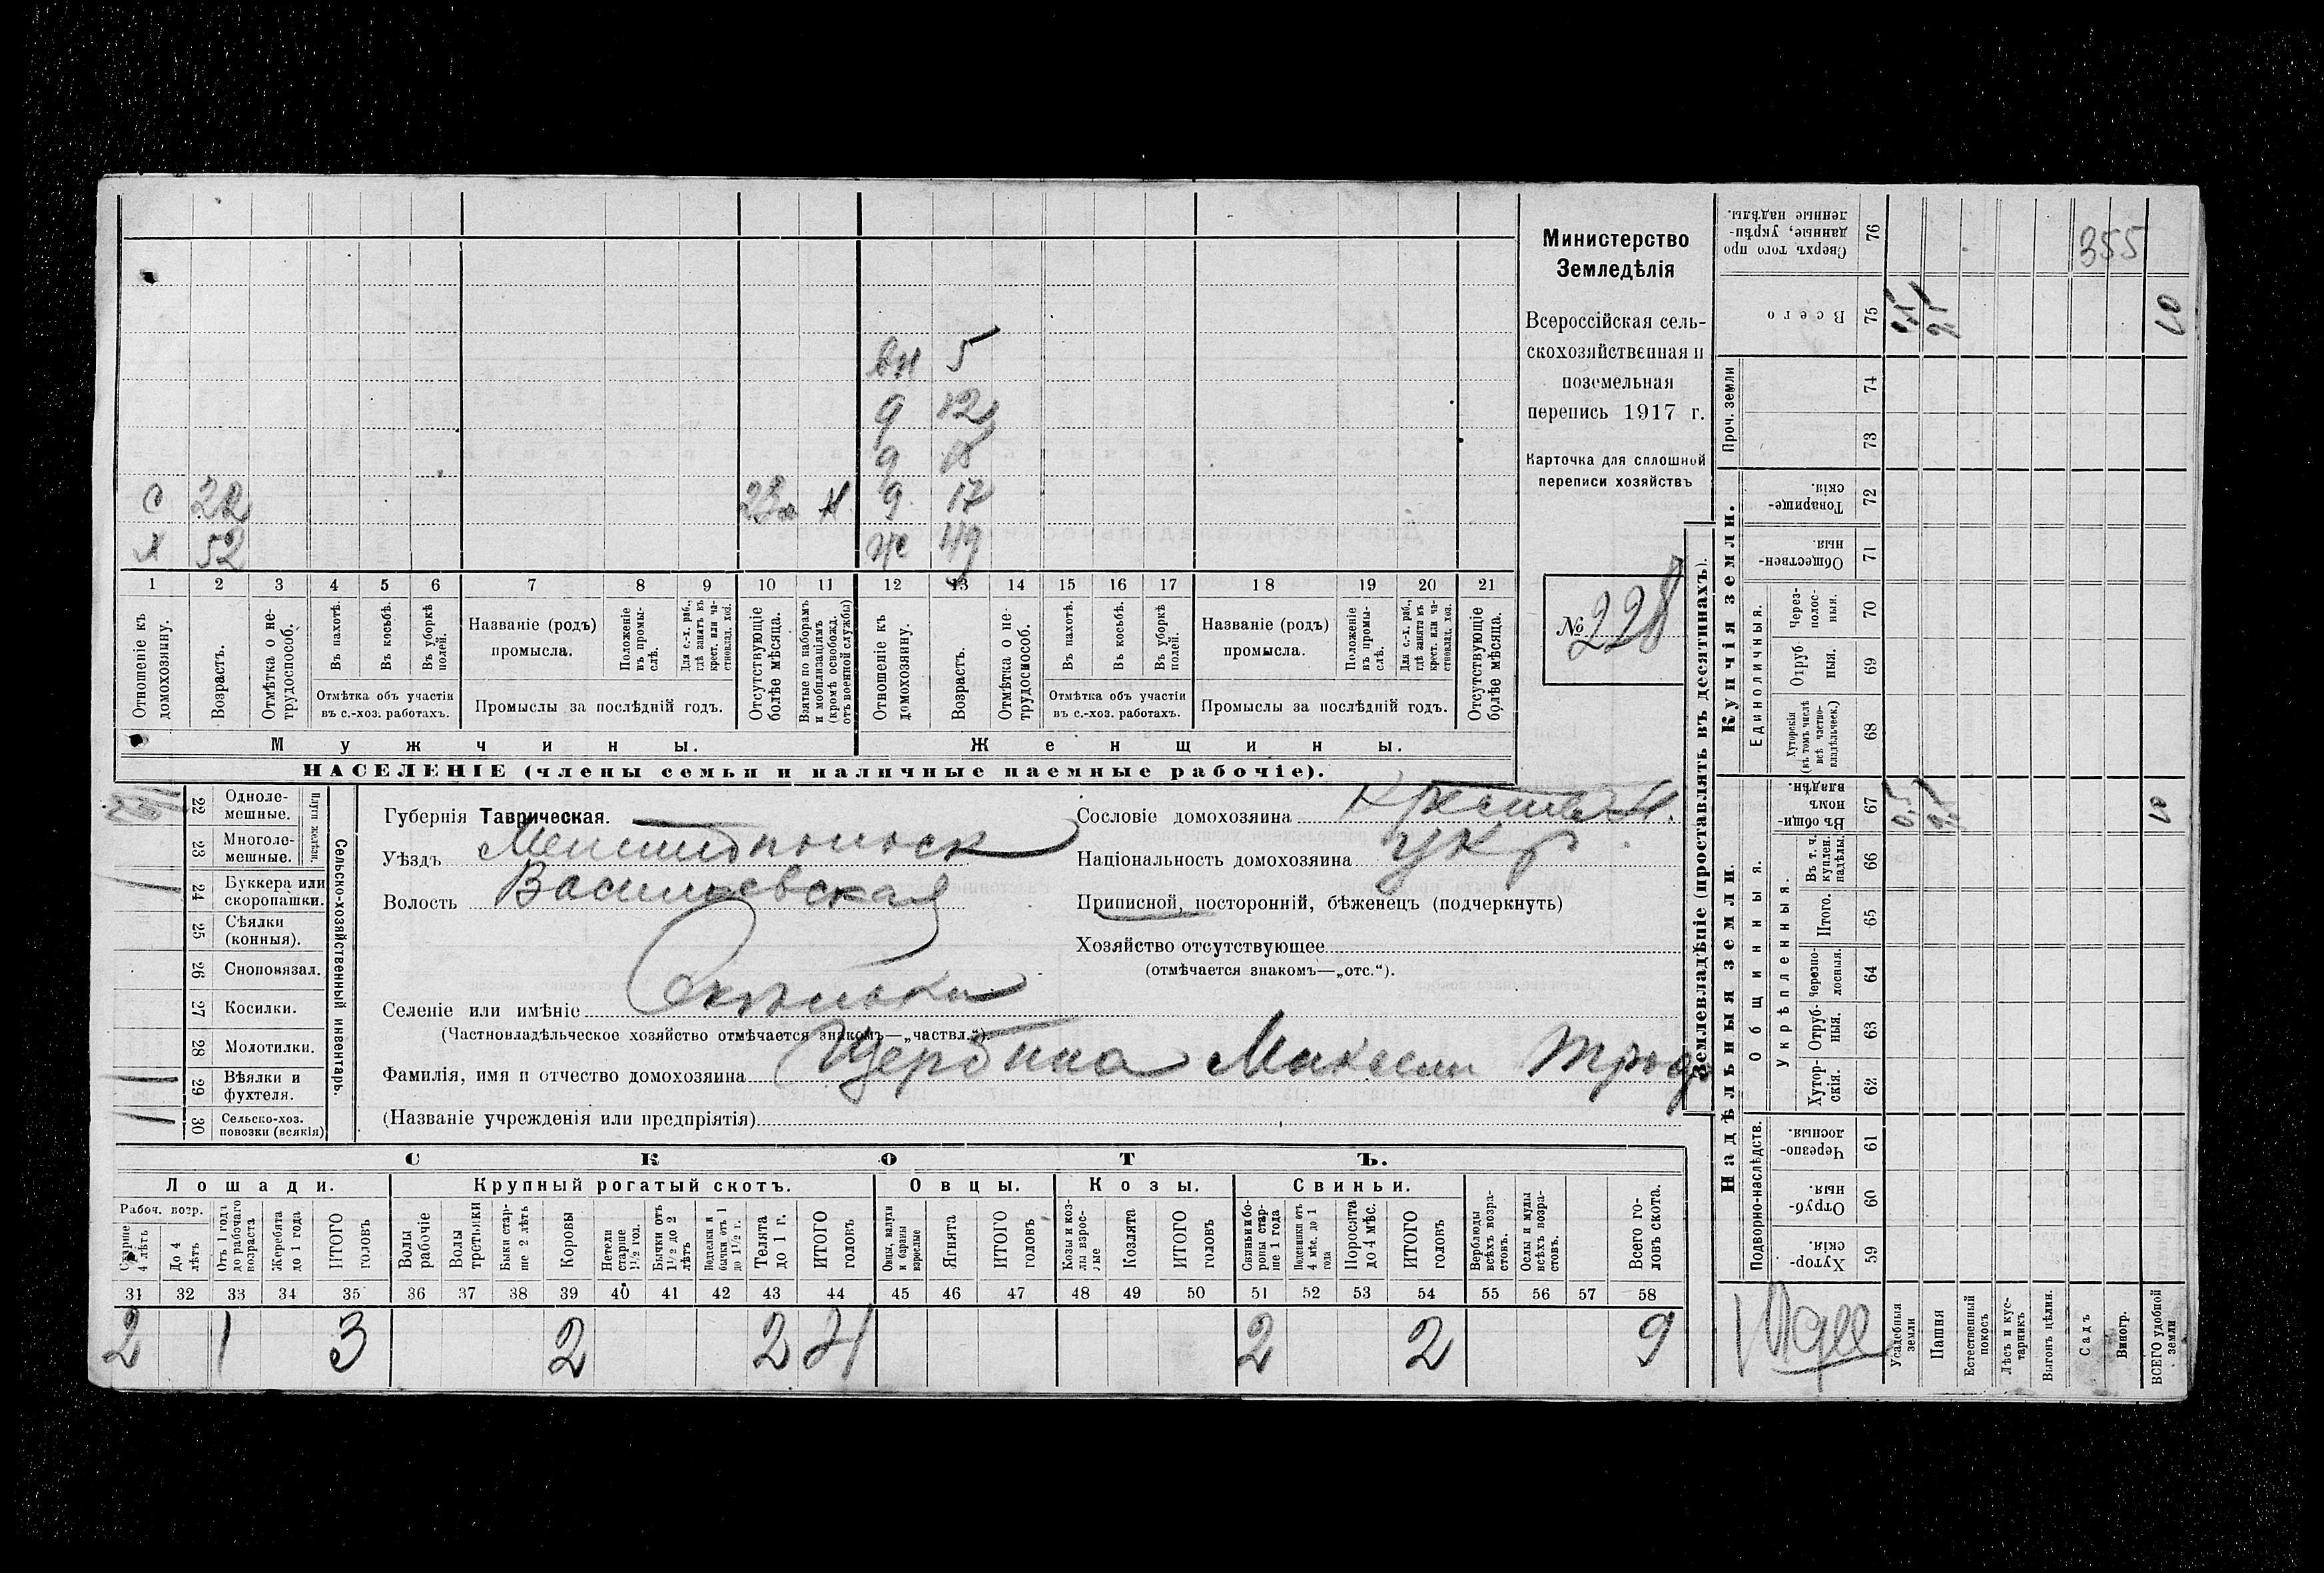 Министерство
Земледѣлія
Всероссійская сель-
скохозяйственная и
поземельная
перепись 1917 г.
Карточка для сплошной
переписи хозяйствъ
№ 228
вн 5
д 12
д
с 22 д 17
х 52 ж 49
1 2 3 4 5 6 7 8 9 10 11 12 13 14 15 16 17 18 19 20 21
Отношеніе къ домохозяину.
Возрастъ.
Отмѣтка о не-трудоспособ.
Въ пахотѣ.
Въ косьбѣ.
Въ уборкѣ полей.
Отмѣтка объ участіи
въ с.-хоз. работахъ.
Названіе (родъ)
промысла.
Положеніе въ промы-слѣ.
Для с.-х. раб., гдѣ занятъ въ крест. или ча-стновлад. хоз.
Промыслы за послѣдній годъ.
Отсутствующіе болѣе мѣсяца.
Взятые по наборамъ и мобилизаціямъ (кромѣ освобожд. отъ военной службы)
Отношеніе къ домохозяину.
Возрастъ.
Отмѣтка о не-трудоспособ.
Въ пахотѣ.
Въ косьбѣ.
Въ уборкѣ полей.
Отмѣтка объ участіи
въ с.-хоз. работахъ.
Названіе (родъ)
промысла.
Положеніе въ промы-слѣ.
Для с.-х. раб., гдѣ занята въ крест. или ча-стновлад. хоз.
Промыслы за послѣдній годъ.
Отсутствующіе болѣе мѣсяца.
Мужчины.
Женщины.
НАСЕЛЕНІЕ (члены семьи и наличные наемные рабочіе).
Сельско-хозяйственный инвентарь.
Плуги желѣзн.
22 Одноле-мешные.
23 Многоле-мешные.
24 Буккера или скоропашки.
25 Сѣялки (конныя).
26 Сноповязал.
27 Косилки.
28 Молотилки.
29 Вѣялки и фухтеля.
30 Сельско-хоз. повозки (всякія)
Губернія Таврическая.
Уѣздъ Мелитопольск
Волость Васильевская
Селеніе или имѣніе Скельки
(Частновладѣльческое хозяйство отмѣчается знакомъ—„частвл.“)
Фамилія, имя и отчество домохозяина Щербина Максим
(Названіе учрежденія или предпріятія)
Сословіе домохозяина Крестьян.
Національность домохозяина укр.
Приписной, посторонній, бѣженецъ (подчеркнуть)
Хозяйство отсутствующее
(отмѣчается знакомъ—„отс.“).
СКОТЪ.
Лошади. Крупный рогатый скотъ. Овцы. Козы. Свиньи.
Рабоч. возр.
Старше 4 лѣтъ
До 4 лѣтъ
Отъ 1 года до рабочаго возраста
Жеребята до 1 года
ИТОГО головъ
Волы рабочіе
Волы третьяки
Быки стар-ше 2 лѣтъ
Коровы
Нетели старше 1½ год.
Бычки отъ 1½ до 2 лѣтъ
Телята до 1 г.
ИТОГО головъ
Овцы, валухи и бараны взрослые
Ягнята
ИТОГО головъ
Козы и коз-лы взрос-лые
Козлята
ИТОГО головъ
Свиньи и бо-ровы стар-ше 1 года
Подсвинки отъ 4 мѣс. до 1 года
Поросята до 4 мѣс.
ИТОГО головъ
Верблюды всѣхъ возра-стовъ.
Ослы и мулы всѣхъ возра-стовъ.
Всего го-ловъ скота.
31 32 33 34 35 36 37 38 39 40 41 42 43 44 45 46 47 48 49 50 51 52 53 54 55 56 57 58
2 1 3 2 2 4 2 2 9
Землевладѣніе (проставлять въ десятинахъ).
Купчія земли.
Надѣльныя земли.
Сверхъ того про данные, укрѣп-ленные надѣлы. 76
355
Всего 75
10
Проч. земли 74 73
Товарище-скія. 72
Обществен-ныя. 71
Единоличныя.
Через-полос-ныя. 70
Отруб ныя. 69
Хуторскія (въ томъ числѣ всѣ частно-владѣльческ.) 68
Общинныя.
Въ общи-номъ владѣн. 67
10
Укрѣпленныя.
Въ т. ч. куплен. надѣлы. 66
Итого. 65
Черезпо-лосныя. 64
Отруб-ныя. 63
Хутор-скія. 62
Подворно-наслѣдств.
Черезпо-лосныя. 61
Отруб-ныя. 60
Хутор-скія. 59
Усадебныя земли
Пашня
Естественный покосъ
Лѣсъ и кус-тарникъ
Выгонъ цѣлин.
Садъ
Виногр.
ВСЕГО удобной земли